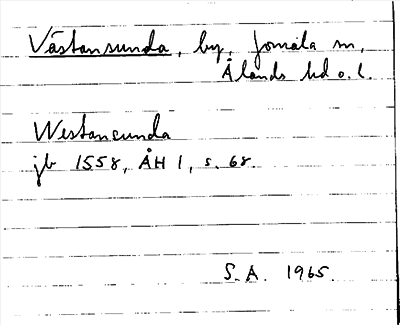 Västansunda, by, Jomala sn,
Ålands hd o. l.
Westansunda
jb 1558, ÅH 1, s. 68.
S.A. 1965.